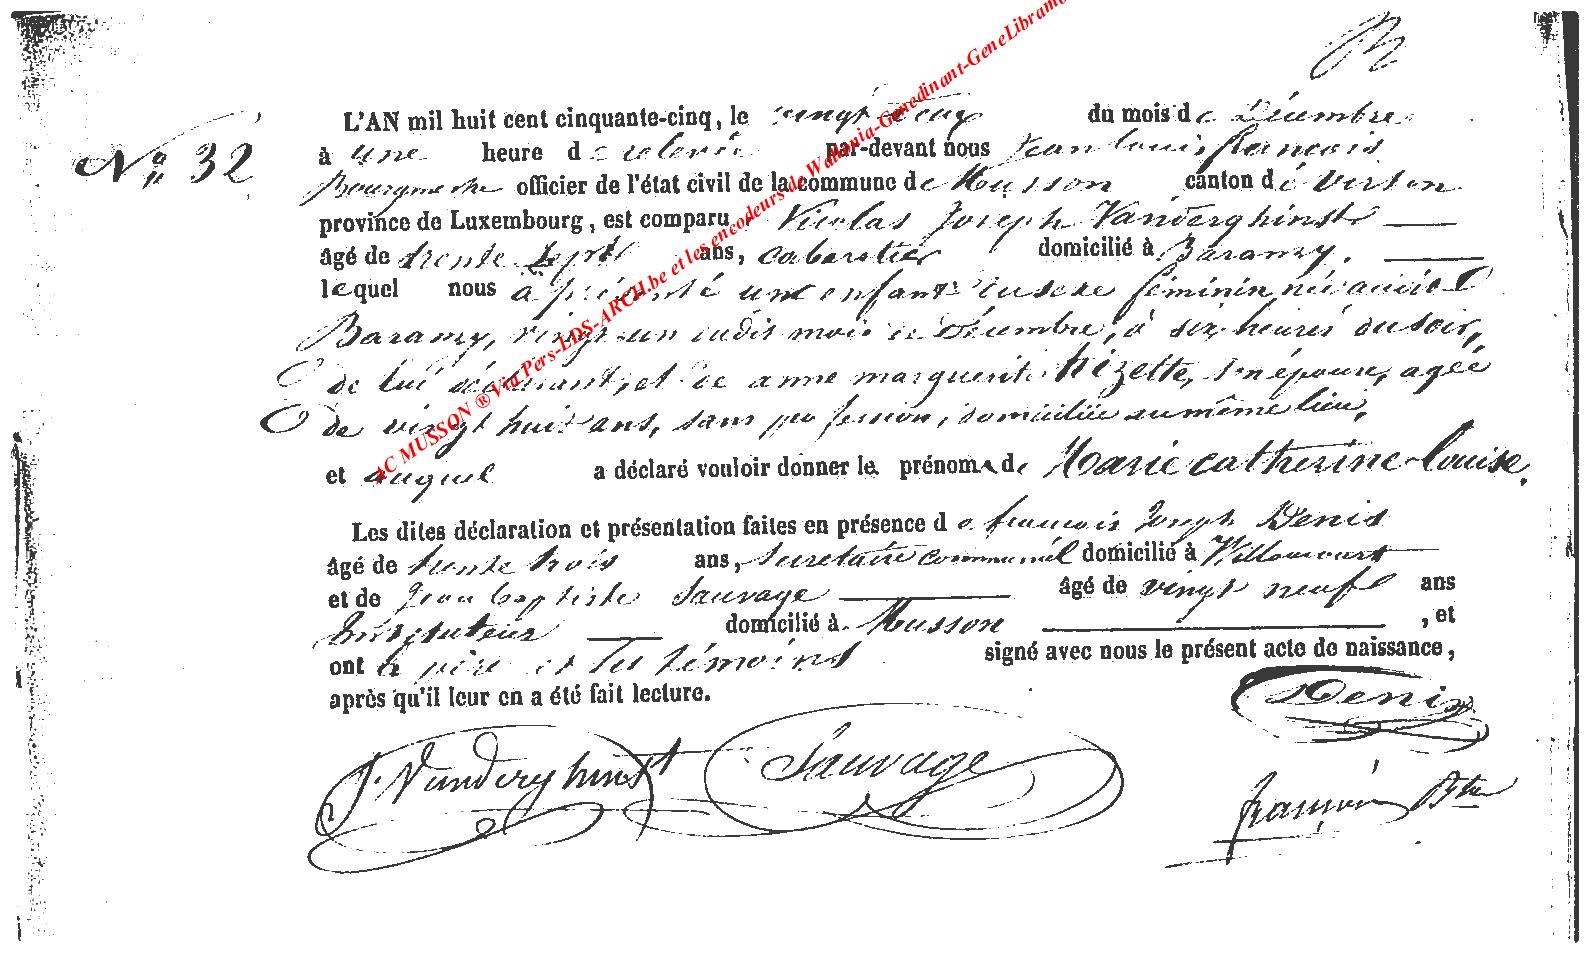 N° 32
L'AN mil huit cent cinquante-cinq, le vingt deux du mois de Décembre
à une heure de relevée par-devant nous Jean louis françois
Bourgmestre officier de l'état civil de la commune de Musson canton de Virton
province de Luxembourg, est comparu Nicolas Joseph Vanderghinst
âgé de trente sept ans, cabaretier domicilié à Baranzy.
lequel nous a présenté un enfant du sexe féminin née audit
Baranzy, vingt-un dudit mois de Décembre, à six heures du soir,
de lui déclarant, et de anne marguerite Nizette, son épouse, agée
de vingt huit ans, sans profession, domiciliée au même lieu,
et auquel a déclaré vouloir donner les prénoms de Marie catherine louise.
Les dites déclaration et présentation faites en présence de françois Joseph Denis
âgé de trente trois ans, secretaire communal domicilié à Willancourt
et de Jean baptiste Sauvage âgé de vingt neuf ans
Instituteur domicilié à Musson, et
ont le père et les témoins signé avec nous le présent acte de naissance,
après qu'il leur en a été fait lecture.
Denis
J. Vanderghinst Sauvage
françois Btre
AC MUSSON ® Via Pers-LDS-ARCH.be et les encodeurs de Wallonia-Genedinant-GeneLibramo